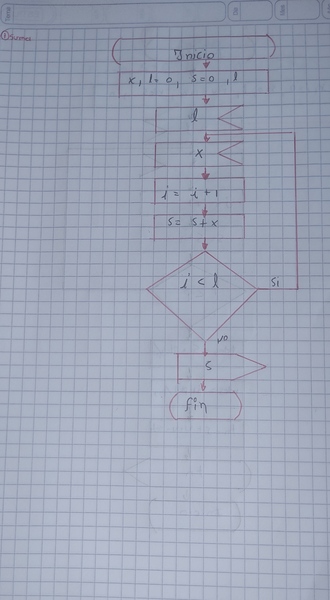 ① suma
Inicio
x, i=0, s=0, l
l
x
i = i + 1
s = s + x
i < l
SI
NO
s
fin